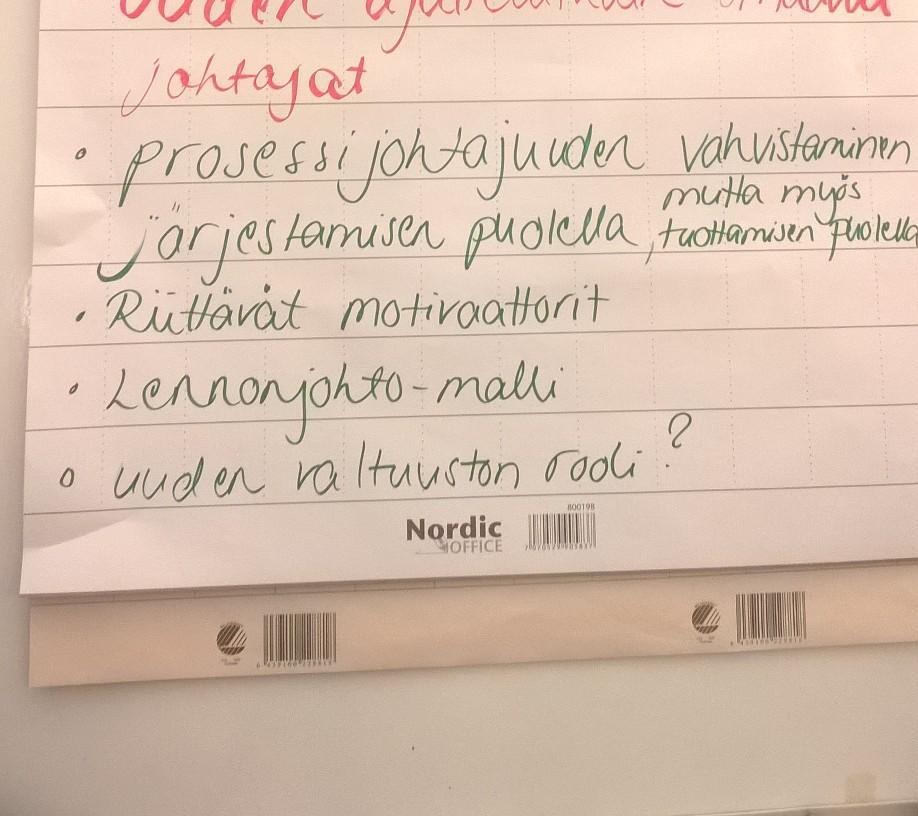 uuden
johtajat
◦ prosessijohtajuuden vahvistaminen
järjestamisen puolella, mutta myös tuottamisen puolella
• Riittävät motivaattorit
• Lennonjohto-malli
◦ uuden valtuuston rooli?
Nordic
OFFICE
800198